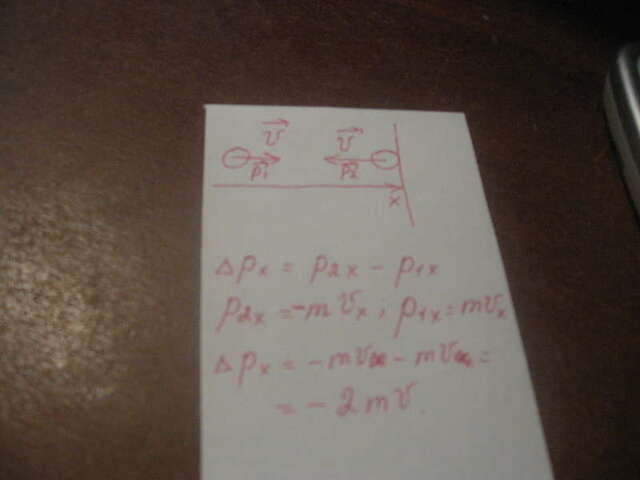 v⃗ v⃗
p⃗1 p⃗2
x
Δpx = p2x - p1x
p2x = -mvx ; p1x = mvx
Δpx = -mvx - mvx =
= -2mv